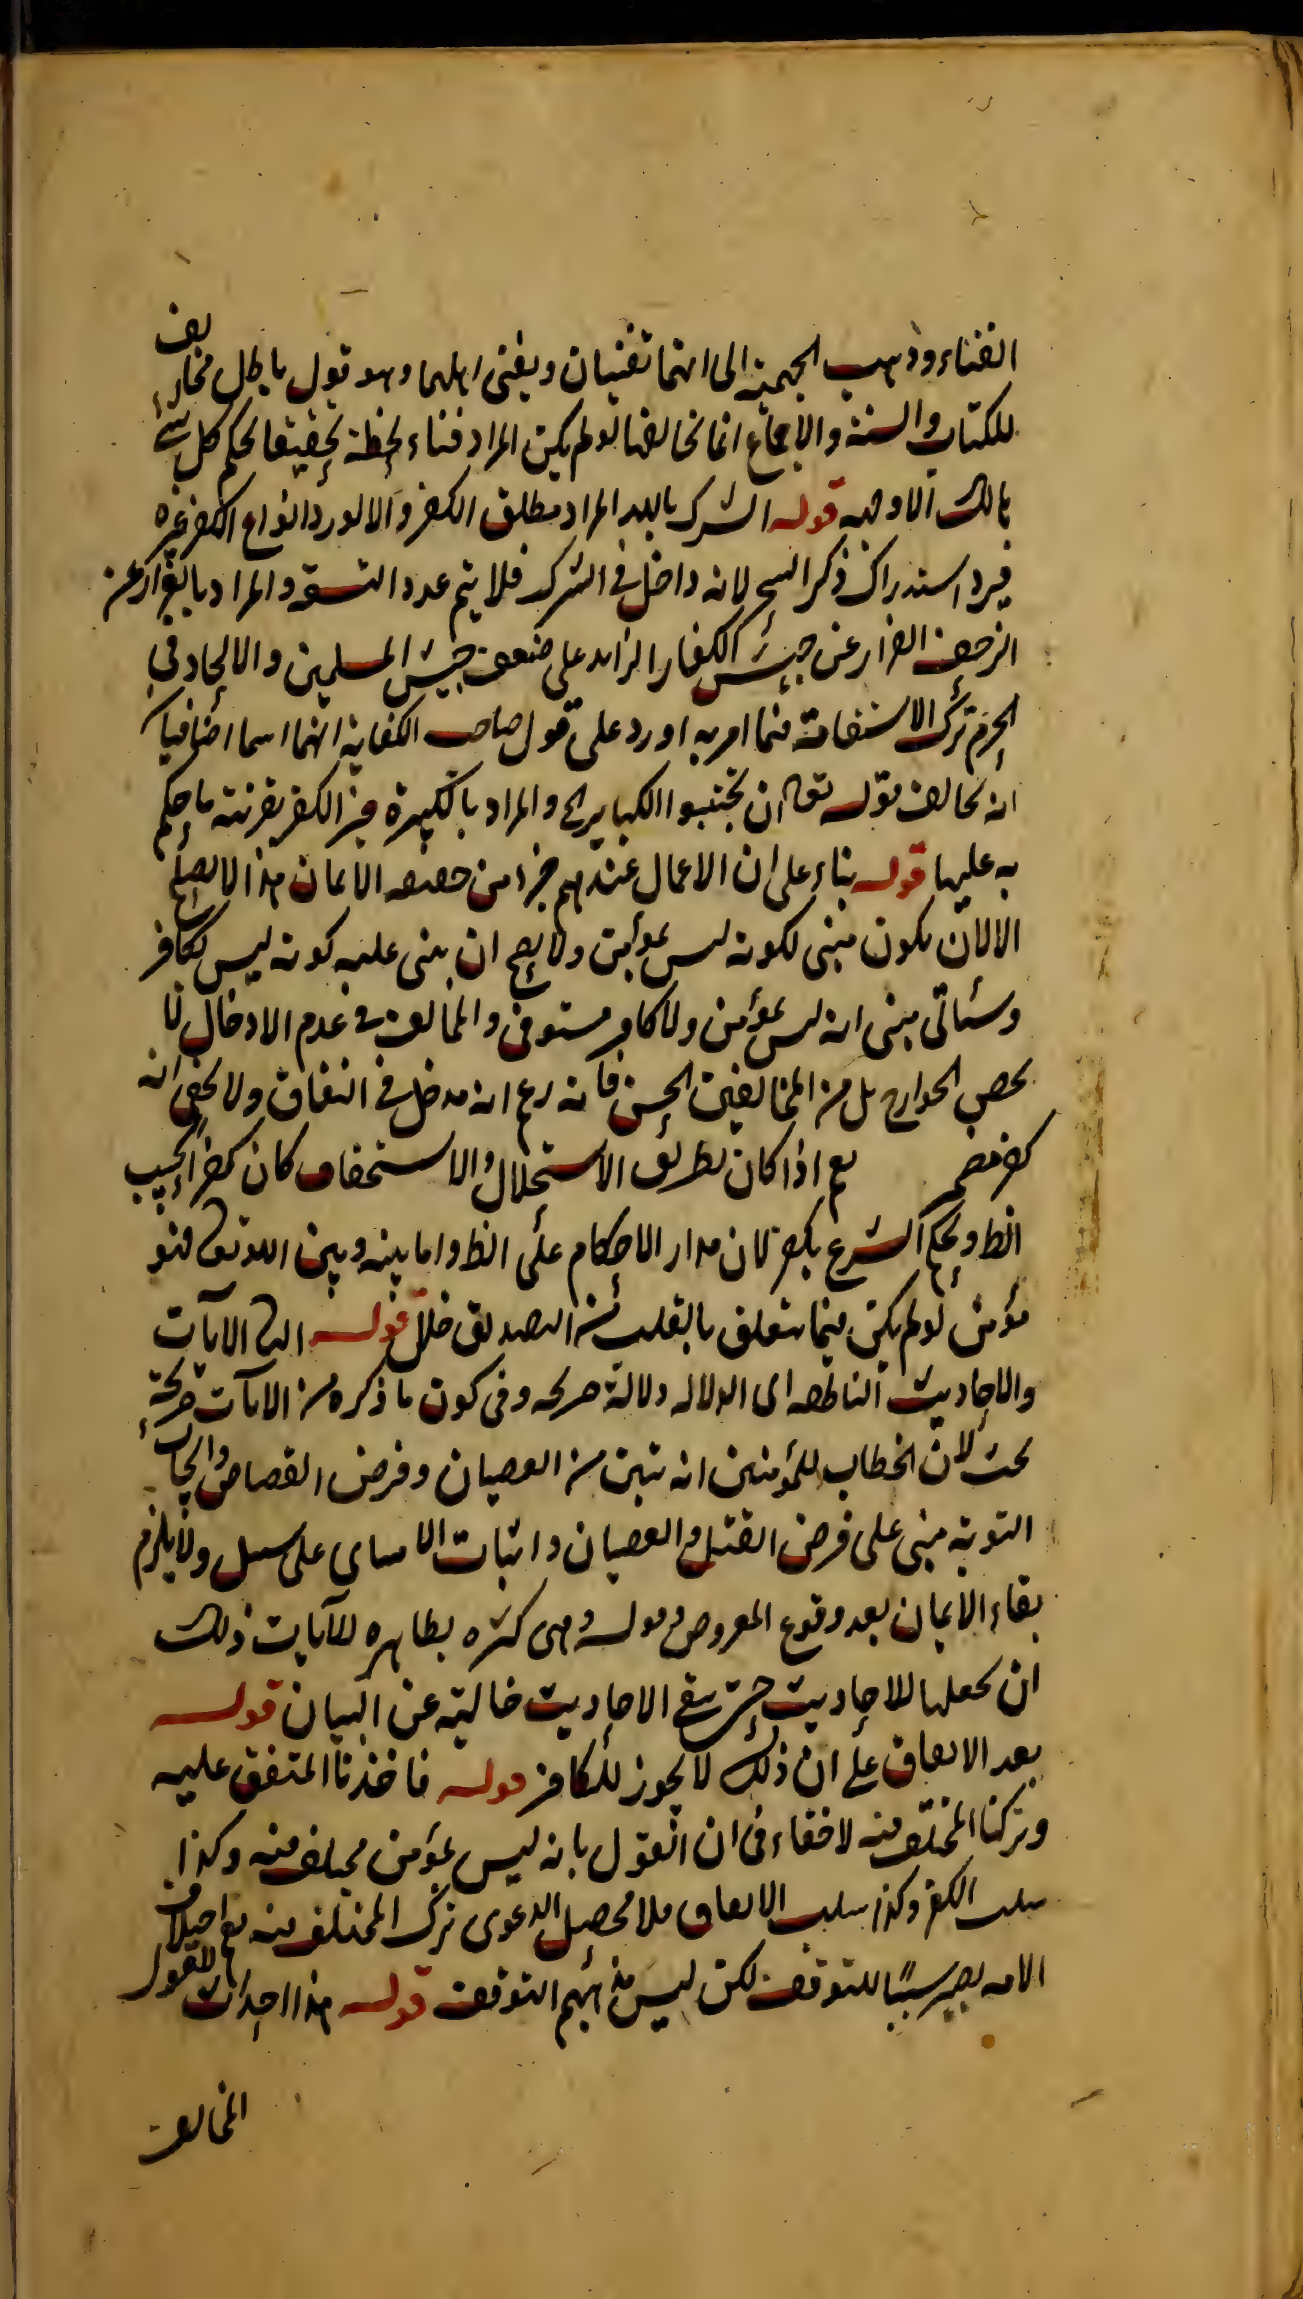 الفناء وذهب الجهمية الى انهما تفنيان ويفنى اهلهما وهو قول باطل مخالف
للكتاب والسنة والاجماع انما يخالفها لو لم يكن المراد فناء لحظة تحقيقا لحكم كل شئ
هالك الا وجهه قوله الشرك بالله المراد مطلق الكفر والا لورد انواع الكفر غيره
فيرد استدراك ذكر السحر لانه داخل في الشرك فلا يتم عدد التسعة والمراد بالفرار عن
الزحف الفرار عن جيش الكفار الزايد على ضعف جيش المسلمين والالحاد في
الحرم ترك الاستقامة فيما امر به اورد على قول صاحب الكفاية انهما اسما اضافيا
انه يخالف قوله تعالى ان تجتنبوا الكباير الخ والمراد بالكبيرة غير الكفر بقرينة ما حكم
به عليها قوله بناء على ان الاعمال عندهم جزء من حقيقة الايمان هذا لا يصلح
الا لان يكون مبنى لكونه ليس بمؤمن ولا يصح ان يبنى عليه كونه ليس بكافر
وسيأتى مبنى انه ليس بمؤمن ولا كافر مستوفى والمخالف في عدم الادخال لا
يخص الخوارج بل من المخالفين الحسن فانه زعم انه مدخل في النفاق ولا يخفى انه
كفر مضمر نعم اذا كان بطريق الاستحلال والاستخفاف كان كفرا بحسب
الظ وبحكم الشرع بكفر لان مدار الاحكام على الظ واما بينه وبين الله تعالى فهو
مؤمن لو لم يكن فيما يتعلق بالقلب من التصديق خلل قوله الثانى الايات
والاحاديث الناطقة اى الدلالة دلالة صريحة وفى كون ما ذكره من الايات صريحة
بحث لان الخطاب للمؤمنين انه يتبين من العصيان وفرض القصاص وايجاب
التوبة مبنى على فرض القتل والعصيان واثبات الاسامى على سبيل ولا يلزم
بقاء الايمان بعد وقوع المفروض وقوله وهى كثيرة بظاهره للآيات ذلك
ان تجعلها للاحاديث حتى يبقى الاحاديث خالية عن البيان قوله
بعد الاتفاق على ان ذلك لا يجوز للكافر قوله فاخذنا المتفق عليه
وتركنا المختلف فيه لا خفاء فى ان القول بانه ليس بمؤمن مختلف فيه وكذا
سلب الكفر وكذا سلب الايمان فلا محصل لدعوى ترك المختلف فيه نعم اختلاف
الامة يصير سببًا للتوقف لكن ليس مذهبهم التوقف قوله هذا احداث للقول
المخالف